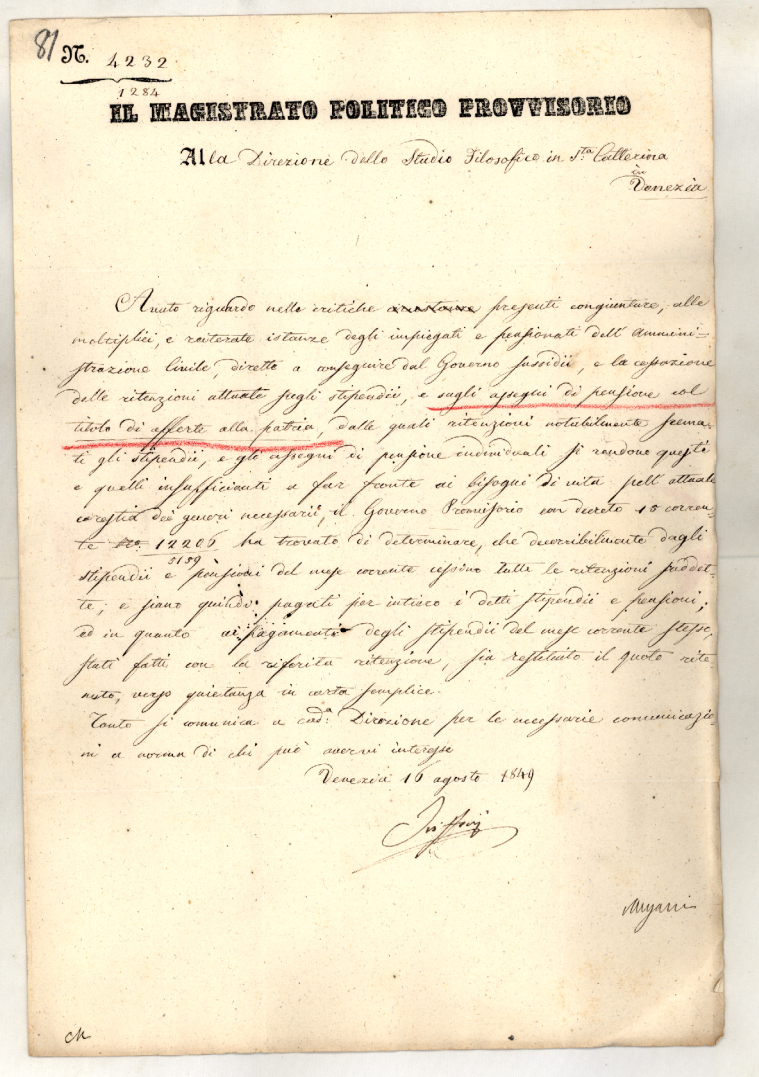 81
N. 4232
1284
IL MAGISTRATO POLITICO PROVVISORIO
Alla Direzione dello Studio Filosofico in S.ta Catterina
in
Venezia
Avuto riguardo nelle critiche presenti congiunture, alle
molteplici, e reiterate istanze degli impiegati e pensionati dell' Ammini-
strazione Civile, dirette a conseguire dal Governo sussidii, e la cessazione
delle ritenzioni attuate sugli stipendii, e sugli assegni di pensione col
titolo di offerte alla patria, dalle quali ritenzioni notabilmente scema-
ti gli stipendii, e gli assegni di pensione individuali si rendono questi
e quelli insufficienti a far fronte ai bisogni di vita nell' attuale
carestia dei generi necessarii, il Governo Provvisorio con decreto 15 corren-
te No. 12206 ha trovato di determinare, che decorribilmente dagli
5159
stipendii e pensioni del mese corrente cessino tutte le ritenzioni suddet-
te; e siano quindi pagati per intiero i detti stipendii e pensioni;
ed in quanto ai pagamenti degli stipendii del mese corrente stesso,
stati fatti con la riferita ritenzione, sia restituito il quoto rite-
nuto, verso quietanza in carta semplice.
Tanto si comunica a cod.a Direzione per le necessarie comunicazio-
ni a norma di chi può avervi interesse
Venezia 16 agosto 1849